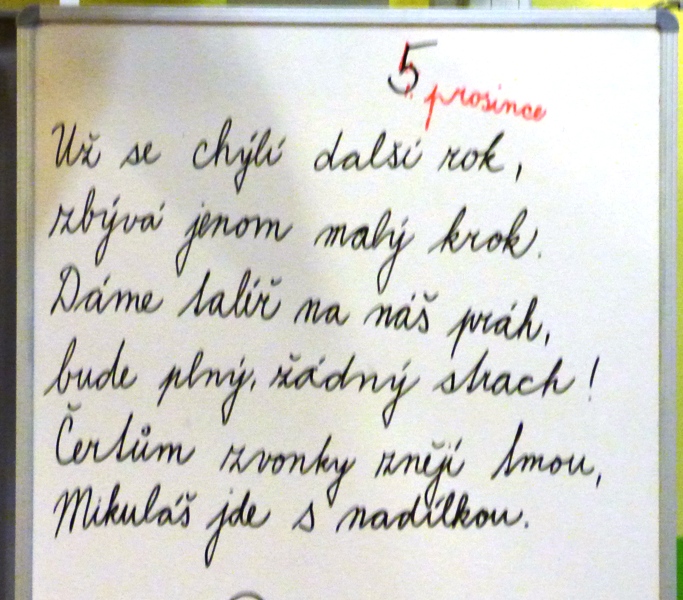 5. prosince
Už se chýlí další rok,
zbývá jenom malý krok.
Dáme talíř na náš práh,
bude plný, žádný strach!
Čertům zvonky znějí tmou,
Mikuláš jde s nadílkou.